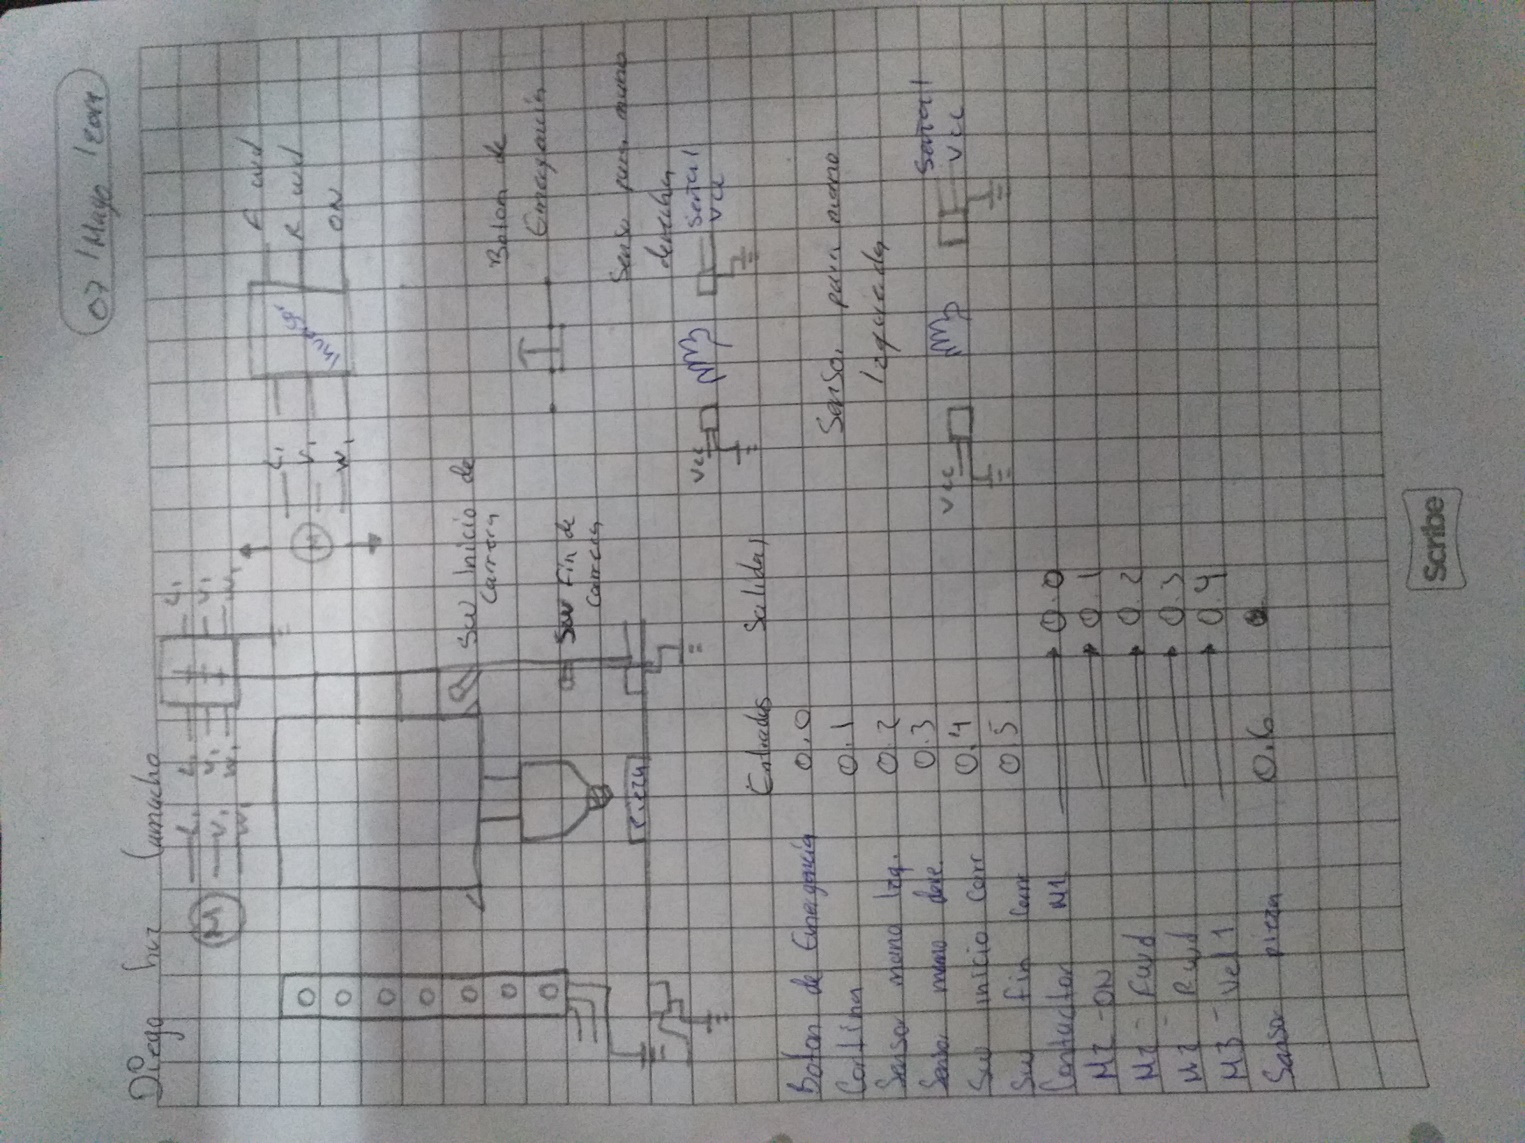 Diego
07 / Mayo /
M
L1
V1
W1
L1
V1
W1
L1
V1
W1
M
L1
V1
W1
Fwd
Rwd
ON
Sw Inicio de
Carrera
Sw Fin de
Carrera
Boton de
Emergencia
Pieza
Sensor para mano
derecha
Vcc
Señal
Vcc
Sensor para mano
Izquierda
Vcc
Señal
Vcc
Entradas Salidas
Boton de Emergencia 0.0
Cortina 0.1
Sensor mano Izq. 0.2
Sensor mano dere. 0.3
Sw inicio Carr 0.4
Sw fin Carr 0.5
Contactor M1 0.0
M2 - ON 0.1
M2 - Fwd 0.2
M2 - Rwd 0.3
M3 - Vel 1 0.4
Sensor pieza 0.6
Scribe